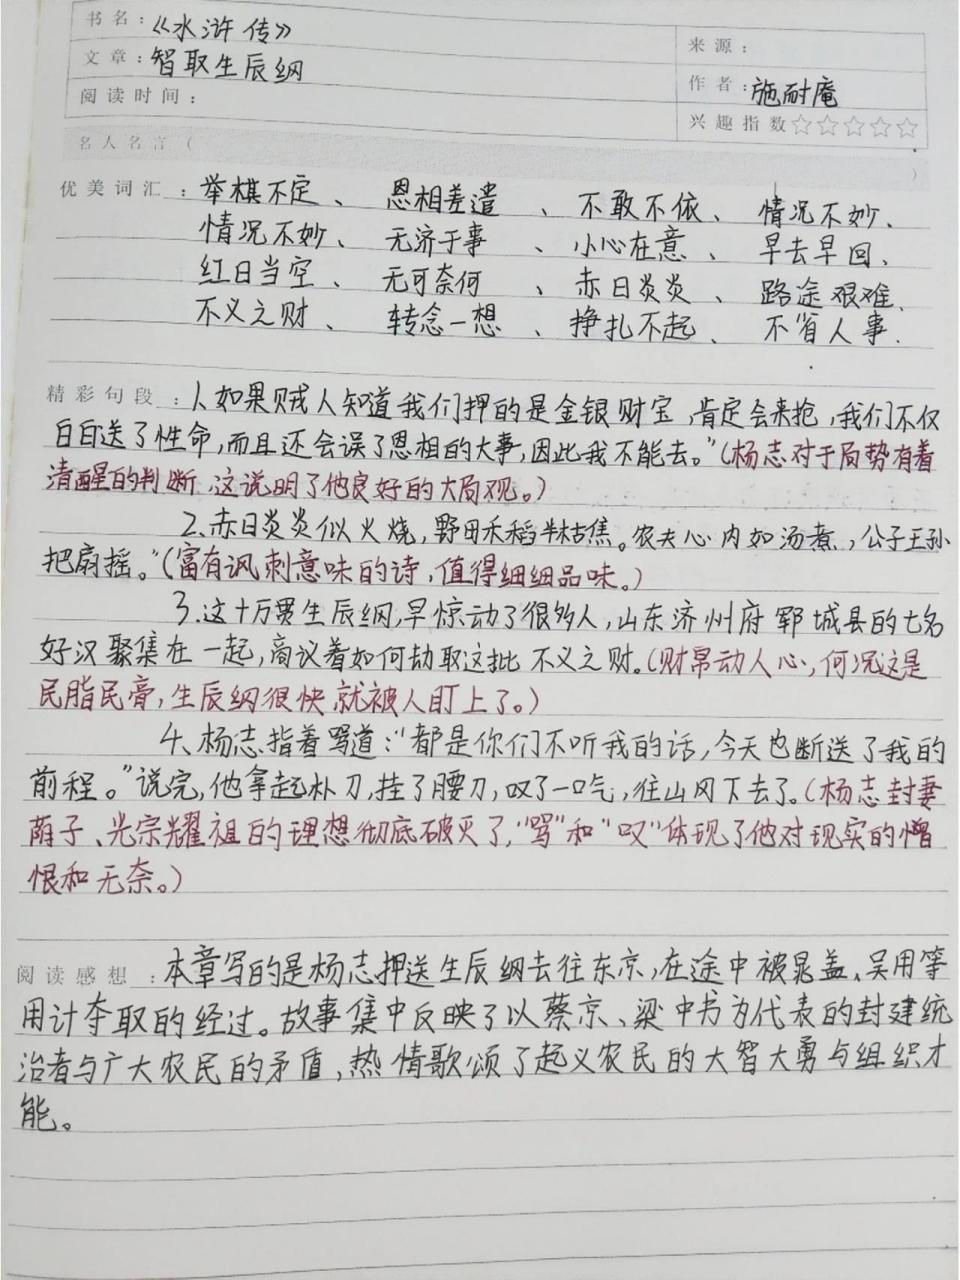 书名：《水浒传》
来源：
文章：智取生辰纲
作者：施耐庵
阅读时间：
兴趣指数☆☆☆☆☆
名人名言（ ）
优美词汇：举棋不定、恩相差遣、不敢不依、情况不妙、
情况不妙、无济于事、小心在意、早去早回、
红日当空、无可奈何、赤日炎炎、路途艰难、
不义之财、转念一想、挣扎不起、不省人事.
精彩句段：1、如果贼人知道我们押的是金银财宝，肯定会来抢，我们不仅
白白送了性命，而且还会误了恩相的大事，因此我不能去。”（杨志对于局势有着
清醒的判断，这说明了他良好的大局观。）
2、赤日炎炎似火烧，野田禾稻半枯焦。农夫心内如汤煮，公子王孙
把扇摇。”（富有讽刺意味的诗，值得细细品味。）
3、这十万贯生辰纲，早惊动了很多人，山东济州府郓城县的七名
好汉聚集在一起，商议着如何劫取这批不义之财。（财帛动人心，何况这是
民脂民膏，生辰纲很快就被人盯上了。）
4、杨志指着骂道：“都是你们不听我的话，今天也断送了我的
前程。”说完，他拿起朴刀，挂了腰刀，叹了一口气，往山冈下去了。（杨志封妻
荫子、光宗耀祖的理想彻底破灭了，“骂”和“叹”体现了他对现实的憎
恨和无奈。）
阅读感想：本章写的是杨志押送生辰纲去往东京，在途中被晁盖、吴用等
用计夺取的经过。故事集中反映了以蔡京、梁中书为代表的封建统
治者与广大农民的矛盾，热情歌颂了起义农民的大智大勇与组织才
能。